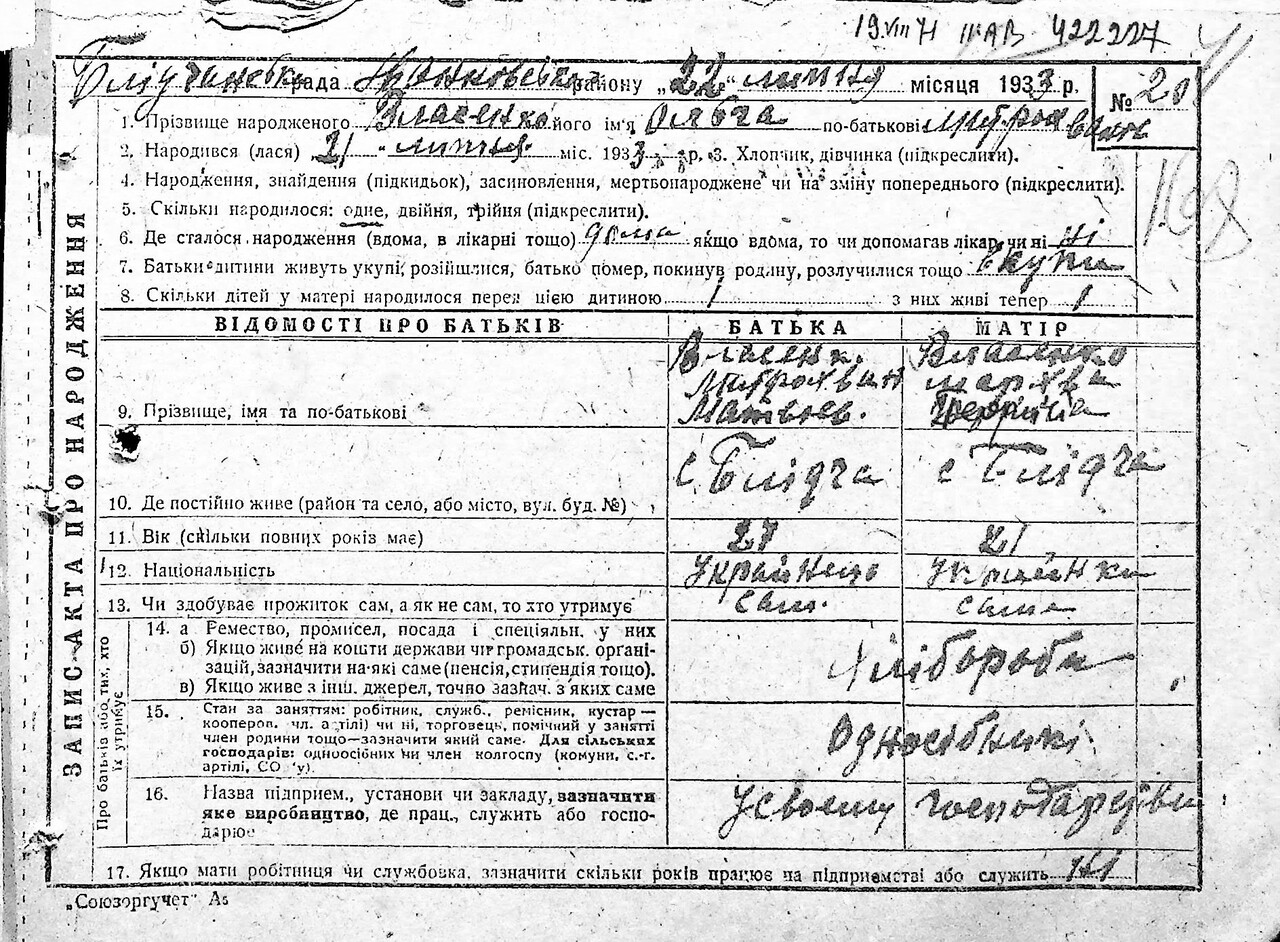 19 VIII 71 III АВ 422227
рада району „22" липня місяця 1933 р.
№ 20
1. Прізвище народженого Власенко його ім'я Ольга по-батькові
2. Народився (лася) 21 липня міс. 1933 р. 3. Хлопчик, дівчинка (підкреслити).
168
4. Народження, знайдення (підкидьок), засиновлення, мертвонароджене чи на зміну попереднього (підкреслити).
5. Скільки народилося: одне, двійня, трійня (підкреслити).
6. Де сталося народження (вдома, в лікарні тощо) дома якщо вдома, то чи допомагав лікар чи ні ні
7. Батьки дитини живуть укупі, розійшлися, батько помер, покинув родину, розлучилися тощо вкупи
8. Скільки дітей у матері народилося перед цією дитиною 1 з них живі тепер 1
ЗАПИС АКТА ПРО НАРОДЖЕННЯ
ВІДОМОСТІ ПРО БАТЬКІВ БАТЬКА МАТІР
Власенк. Власенко
Митрохван Мархва
Матвьєв.
9. Прізвище, імя та по-батькові
с Блідча с Блідча
10. Де постійно живе (район та село, або місто, вул. буд. №)
11. Вік (скільки повних років має) 27 21
12. Національність Українець Українка
13. Чи здобуває прожиток сам, а як не сам, то хто утримує сам. сама
Про батьків або тих, хто їх утримує
14. а Ремество, промисел, посада і спеціяльн. у них
б) Якщо живе на кошти держави чи громадськ. органі-
зацій, зазначити на які саме (пенсія, стипендія тощо).
в) Якщо живе з інш. джерел, точно зазнач. з яких саме
Хлібороби
15. Стан за заняттям: робітник, служб., ремісник, кустар—
кооперов. чл. артілі) чи ні, торговець, помічний у занятті
член родини тощо—зазначити який саме. Для сільських
господарів: одноосібних чи член колгоспу (комуни, с.-г.
артілі, СО у).
Односібники
16. Назва підприєм., установи чи закладу, зазначити
яке виробництво, де прац., служить або госпо-
дарює
у своему господарстви
17. Якщо мати робітниця чи службовка, зазначити скільки років працює на підприємстві або служить ні
„Союзоргучет" А5